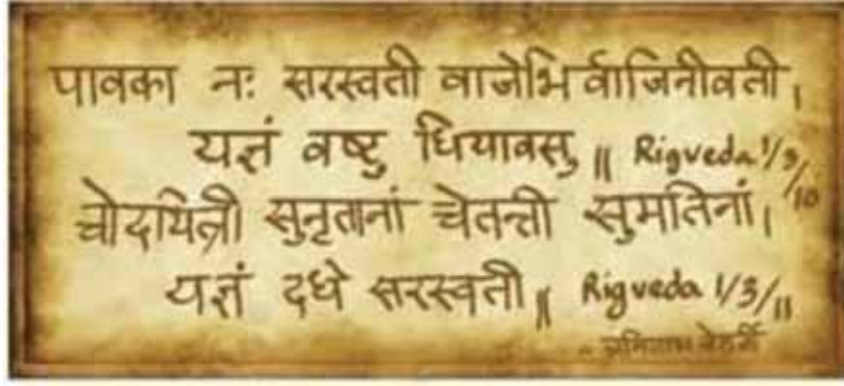 पावका नः सरस्वती वाजेभिर्वाजिनीवती।
यज्ञं वष्टु धियावसु॥ Rigveda 1/3/10
चोदयित्री सुनृतानां चेतन्ती सुमतिनां।
यज्ञं दधे सरस्वती॥ Rigveda 1/3/11